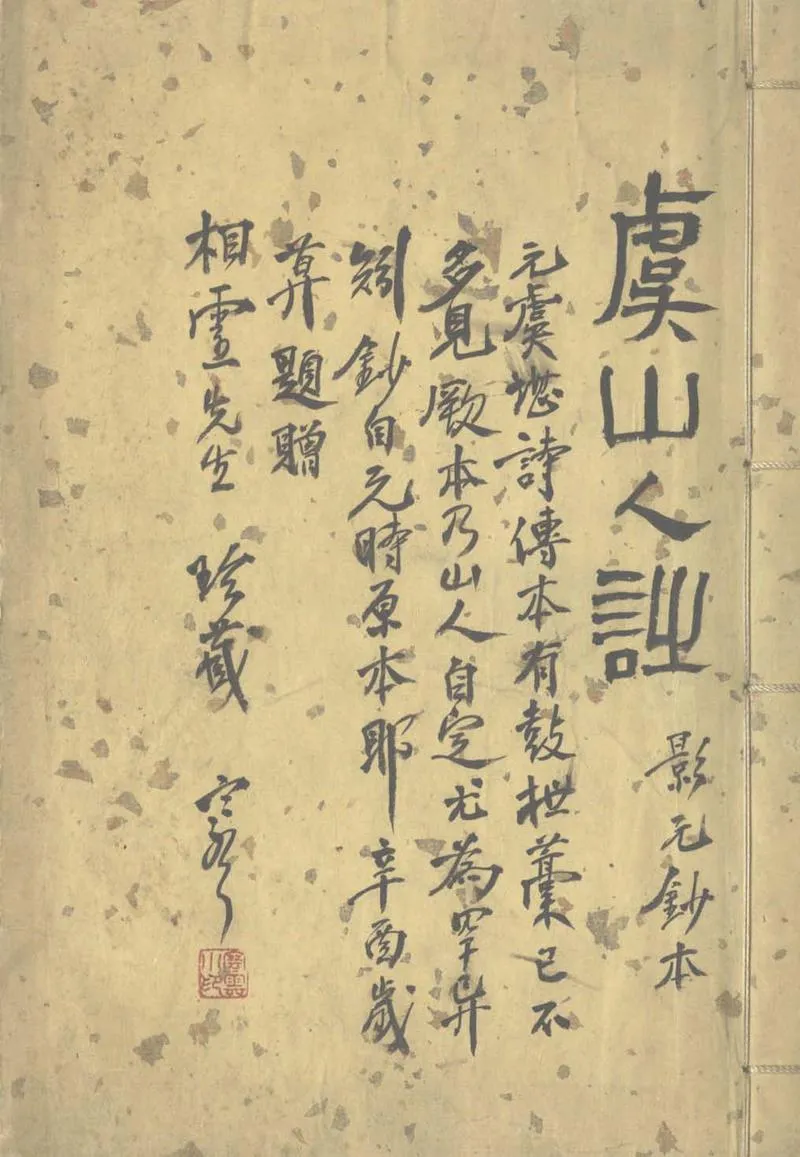 虞山人詩
影元鈔本
元虞堪詩傳本有鼓枻藁已不
多見厥本乃山人自定尤為罕异
矧鈔自元時原本耶辛酉歲
莫題贈
相霊先生 珍藏 寒雲
寒雲小印